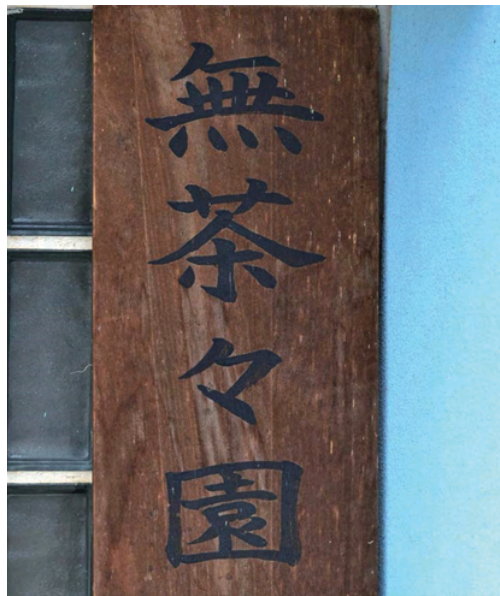 無茶々園